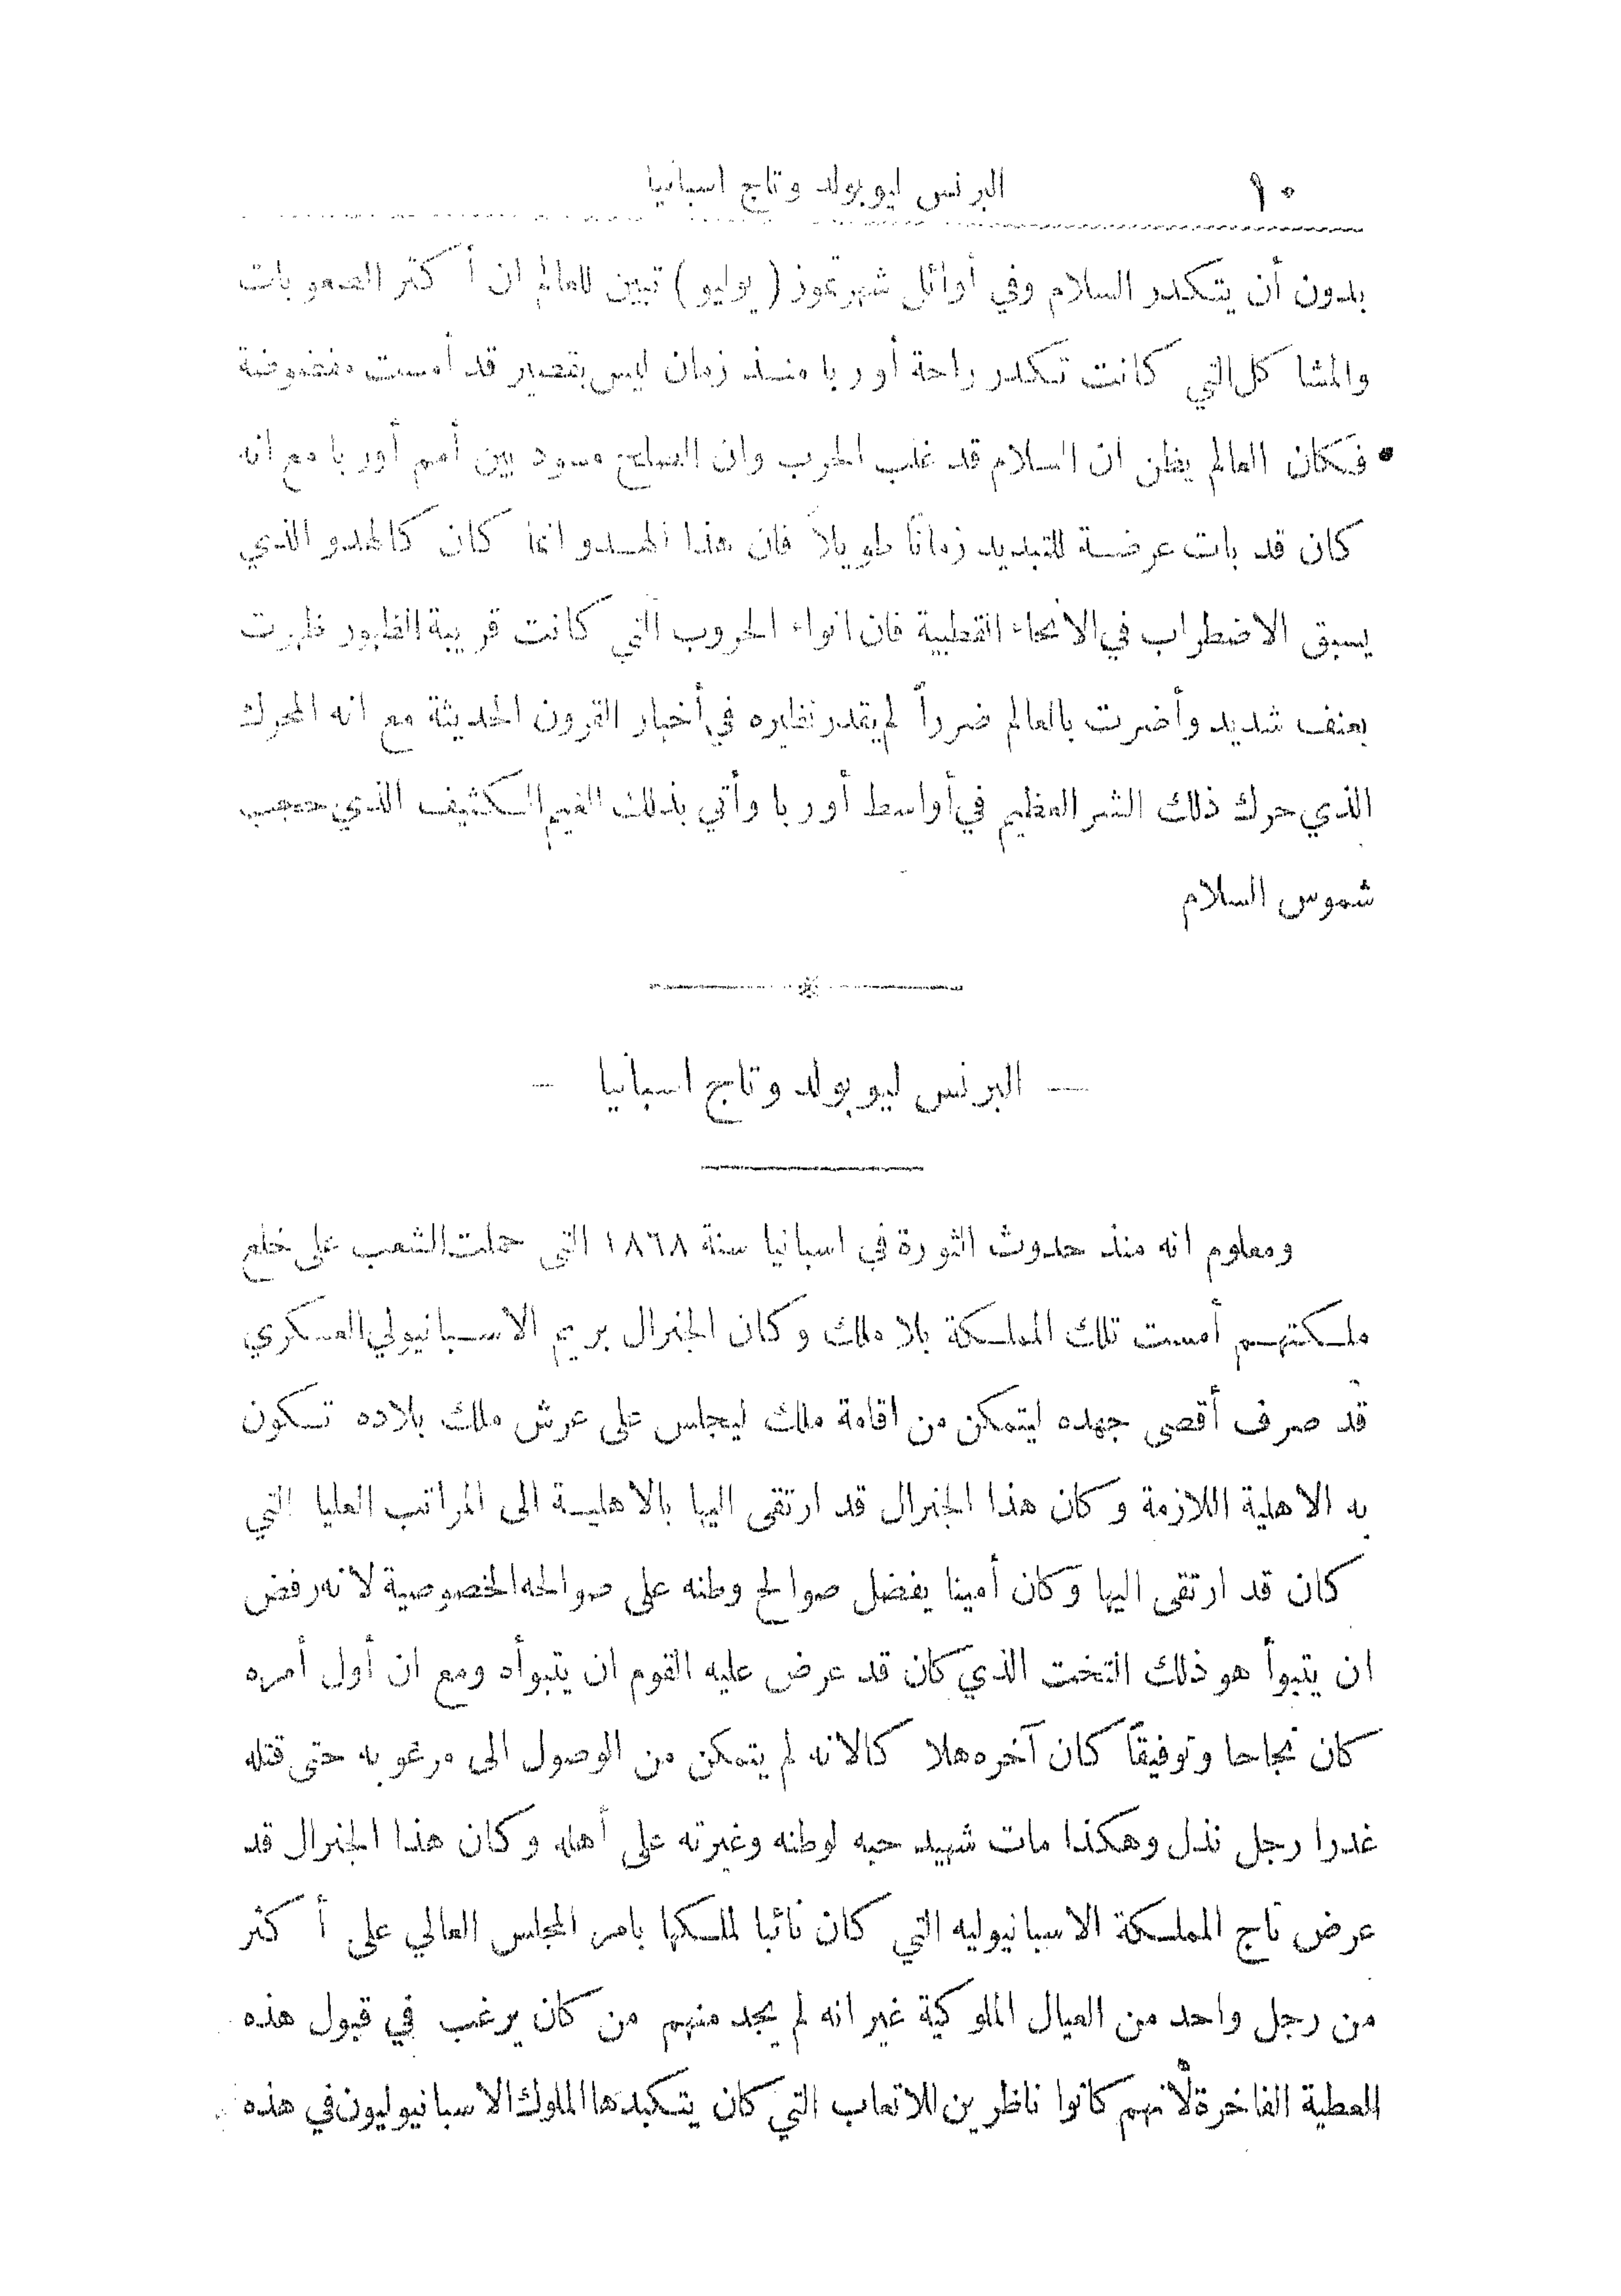 ١٠ البرنس ليوبولد وتاج اسبانيا
بدون أن يتكدر السلام وفي أوائل شهر تموز ( يوليو ) تبين للعالم ان أكثر الصعوبات
والمشاكل التي كانت تكدر راحة أوربا منذ زمان ليس بقصير قد أمست مفضوضة
فكان العالم يظن ان السلام قد غلب الحرب وان الصلح سود بين أمم أوربا مع انه
كان قد بات عرضة للتبديد زمانًا طويلاً فان هذا الهدو انما كان كالهدو الذي
يسبق الاضطراب في الانحاء القطبية فان انواء الحروب التي كانت قريبة الظهور ظهرت
بعنف شديد وأضرت بالعالم ضرراً لم يقدر نظيره في أخبار القرون الحديثة مع انه المحرك
الذي حرك ذلك الشر العظيم في أواسط أوربا وأتي بذلك الغيم الكثيف الذي حجب
شموس السلام
— البرنس ليوبولد وتاج اسبانيا —
ومعلوم انه منذ حدوث الثورة في اسبانيا سنة ١٨٦٨ التي حملت الشعب على خلع
ملكتهم أمست تلك المملكة بلا ملك وكان الجنرال بريم الاسبانيولي العسكري
قد صرف أقصى جهده ليتمكن من اقامة ملك ليجلس على عرش ملك بلاده تكون
به الاهلية اللازمة وكان هذا الجنرال قد ارتقى اليها بالاهلية الى المراتب العليا التي
كان قد ارتقى اليها وكان أمينا يفضل صوالح وطنه على صوالحه الخصوصية لانه رفض
ان يتبوأ هو ذلك التخت الذي كان قد عرض عليه القوم ان يتبوأه ومع ان أول أمره
كان نجاحا وتوفيقاً كان آخره هلاكا لانه لم يتمكن من الوصول الى مرغوبه حتى قتله
غدرا رجل نذل وهكذا مات شهيد حبه لوطنه وغيرته على أهله وكان هذا الجنرال قد
عرض تاج المملكة الاسبانيوليه التي كان نائبا لملكها بامر المجلس العالي على أكثر
من رجل واحد من العيال الملوكية غير انه لم يجد منهم من كان يرغب في قبول هذه
العطية الفاخرة لأنهم كانوا ناظرين للاتعاب التي كان يتكبدها الملوك الاسبانيوليون في هذه